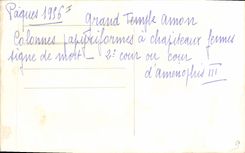 Pâques 1936 Grand Temple Amon
Colonnes papyriformes à chapiteaux fermes
signe de mort - 2e cour ou cour
d'amenophis III